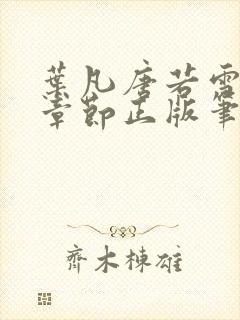 葉凡唐若雪
章節正版筆
齊木棟雄